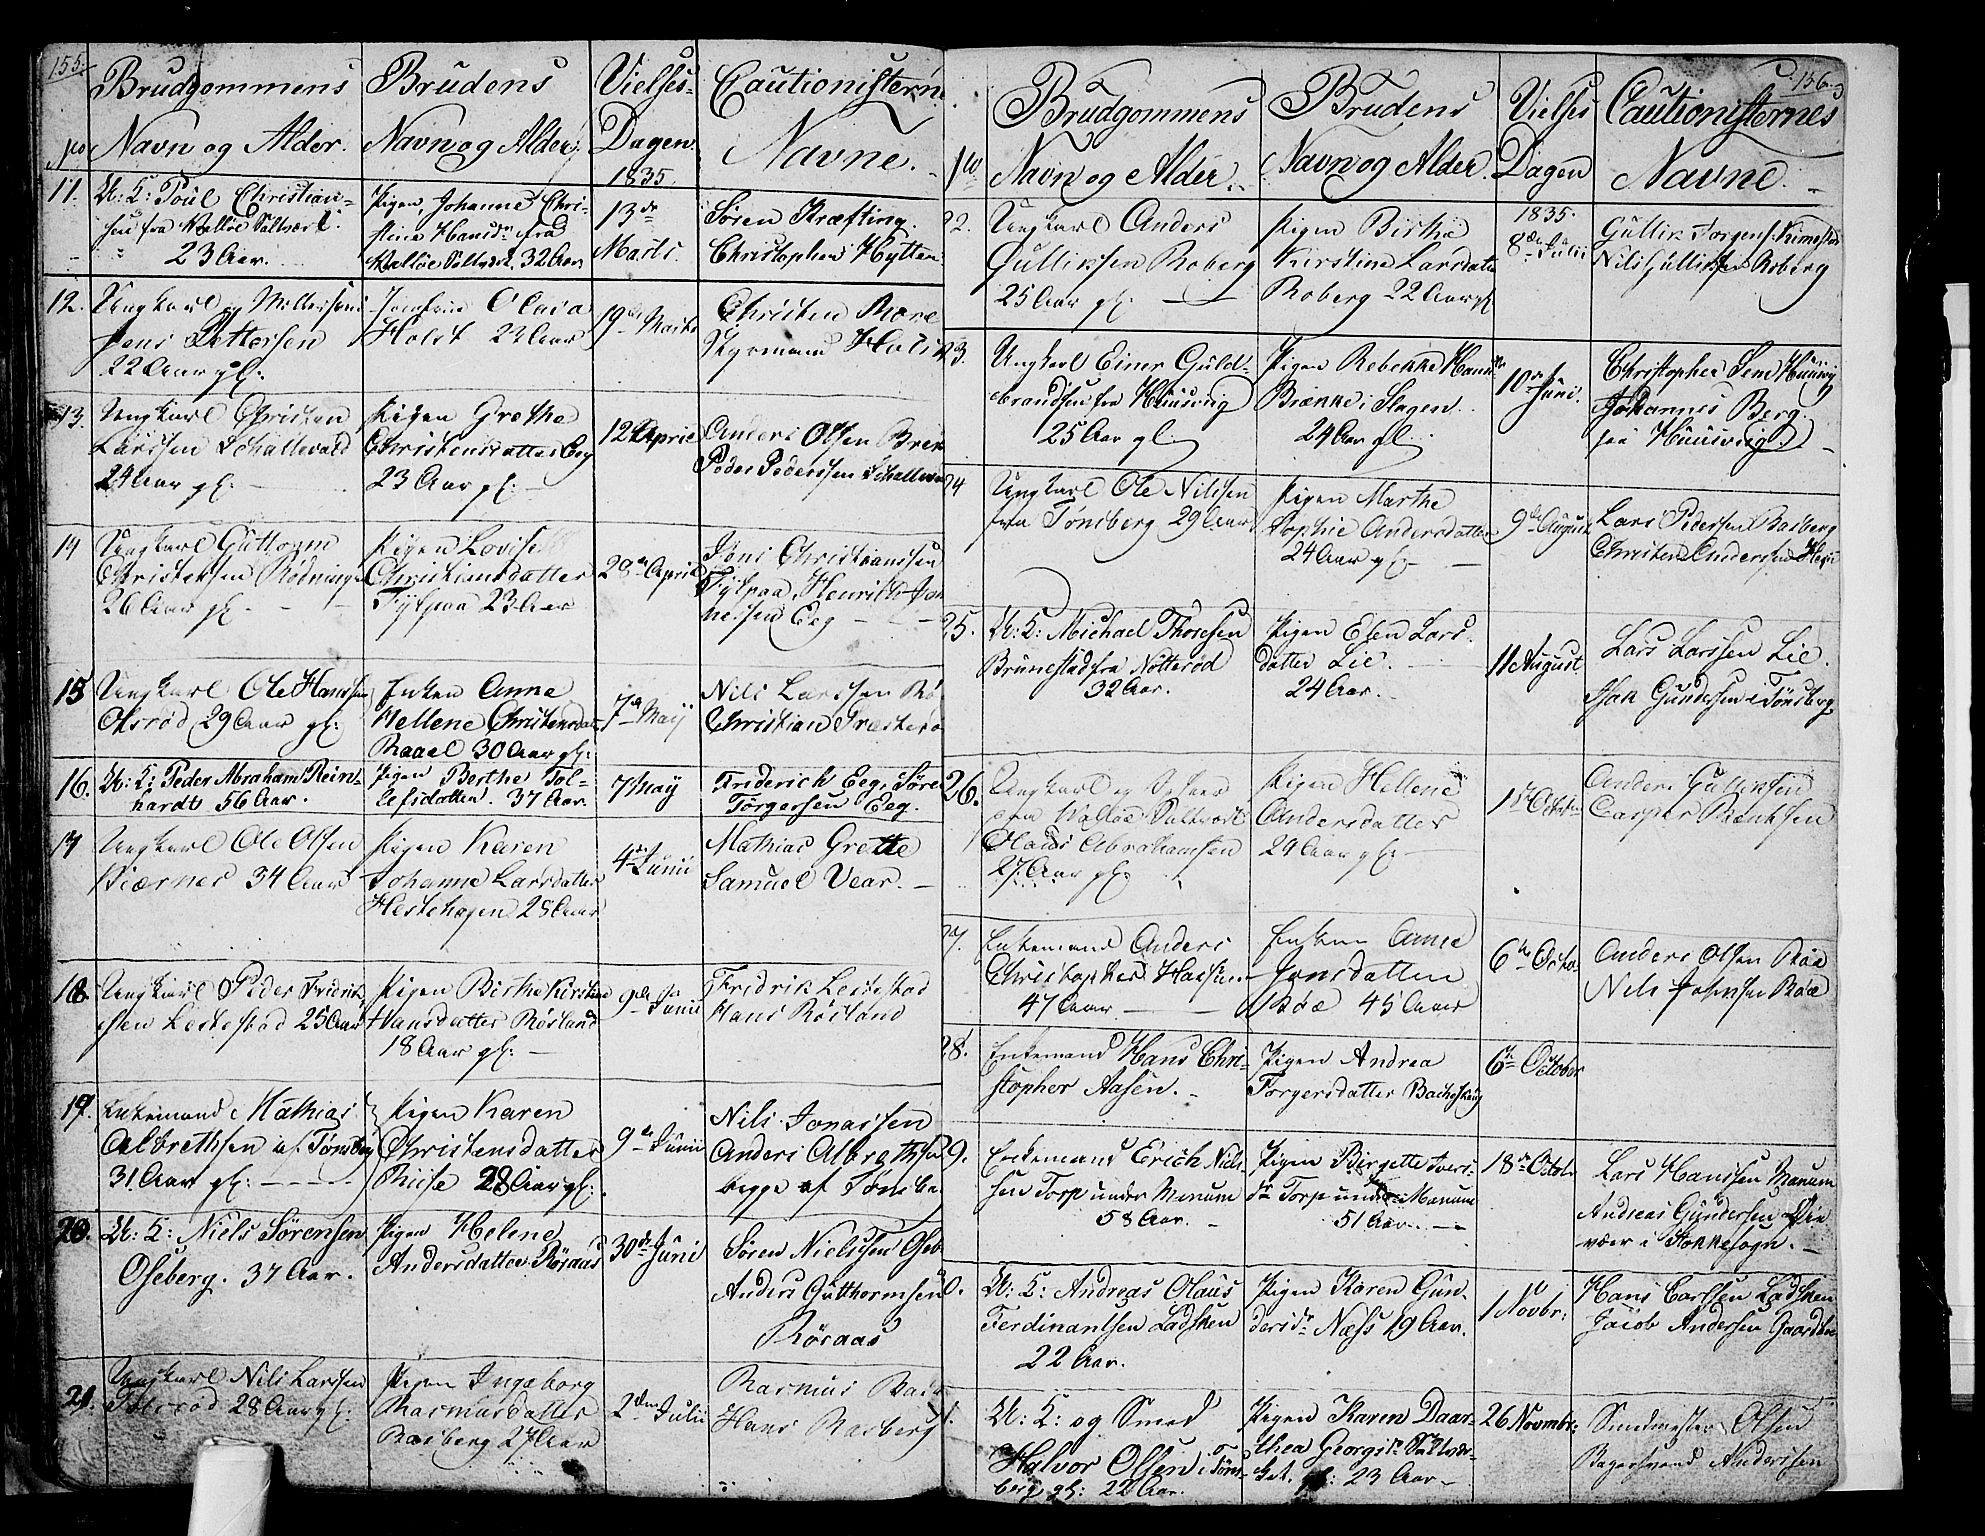 155.
Brudgommens
Navn og Alder.
Brudens
Navn og Alder.
Vielses-
Dagen
1835.
Cautionisterne
Navne.
No
11. U: K: Poul Christian-
sen fra Walløe Saltværk.
23 Aar.
Pigen Johanne Chri-
stine Hansdr fra
Walløe Saltværk. 32 Aar
13de
Marts.
Søren Kræfting.
Christopher Hytten
12. Ungkarl og
Jens Pettersen
22 Aar gl:
Jomfrue Olaia
Holst 22 Aar
19de Marts
Christen
Styrmand Holst
13. Ungkarl Christen
Larssen Schallevold
24 Aar gl: -
Pigen Grethe
Christensdatter Eeg
23 Aar gl: -
12 April
Anders Olsen
Peder Pederssen
14 Ungkarl Guttorm
Christensen Rødning
26 Aar gl. -
Pigen Lovise
Christiansdatter
Tyfpaa 23 Aar
28de April
Jens Christianssen
Tyfpaa, Henrik Jo
nessen Eeg -
15 Ungkarl Ole Hanssen
Olsrød 29 Aar gl:
Enken Anne
Hellene Christensdatter
Raael 30 Aar gl:
7de Maij
Nils Larssen
Christian
16. U: K: Peder Abraham Rein-
hardt 56 Aar.
Pigen Berthe Tol-
lefsdatter. 37 Aar
7 Maÿ
Friderich Eeg, Søre
Torgersen Eeg.
17 Ungkarl Ole Olsen
Biærnes 34 Aar
Pigen Karen
Johanne Larsdatter
Hestehagen 28 Aar
4de Junii
Mathias Grette
Samuel Vear. -
18 Ungkarl Peder Fridrik
sen Lestestad 25 Aar
Pigen Birthe Kirstine
Hansdatter Røsland
18 Aar gl: -
9de Junii
Fridrik Lestestad
Hans Røsland
19. Enkemand Mathias
Albrethsen af Tønsberg
31 Aar gl: -
Pigen Karen
Christensdatter
Riise 28 Aar gl:
9de Junii
Nils Jonassen
Anders Albrethsen
begge af Tønsbe
20. U: K: Niels Sørensen
Oseberg. 37 Aar.
Pigen Helene
Andersdatter Røraas
30de Juni
Søren Nielssen Oseb
Anders Gutthormsen
Røraas
21. Ungkarl Nils Larssen
28 Aar gl:
Pigen Ingeborg
Rasmusdatter
Basberg 27 Aar
2den Julii
Rasmus Bas
Hans Basberg
156
No
Brudgommens
Navn og Alder.
Brudens
Navn og Alder.
Vielses
Dagen
1835.
Cautionisternes
Navne. -
22. Ungkarl Anders
Gulliksen Roberg
25 Aar gl. -
Pigen Birthe
Kirstine Larsdatter
Roberg 22 Aar gl
8de Julii
Gullik Torgens.
Nils Gulliksen Roberg
23. Ungkarl Einer Guld-
brandsen fra Huusvig
25 Aar gl.
Pigen Rebekke Hansdr
Brække i Slagen.
24 Aar gl.
10de Juni.
Christopher Sem Huusvig
Johannes Berg.
paa Huusvig.
24 Ungkarl Ole Nilssen
fra Tønsberg 29 Aar
Pigen Marthe
Sophie Andersdatter
24 Aar gl: -
9de August
Lars Pedersen Basberg
Christen Anderssen
25. U: K: Michael Thoresen
Brunestad fra Nøtterød
32 Aar.
Pigen Elen Lars-
datter Lie.
24 Aar.
11 August
Lars Larssen Lie.
Isak Gundersen i Tønsberg.
26. Ungkarl og
paa Walløe Saltværk
Abrahamsen
27 Aar gl:
Pigen Hellene
Andersdatter
29 Aar gl: -
1ste Octobr
Anders Gulliksen
Casper Bentsen
27. Enkemand Anders
Christopher Hanssen
47 Aar -
Enken Anne
Jonsdatter
Bøe 45 Aar
6te Octo
Anders Olsen Bøe
Nils Johnsen Bøe
28. Enkemand Hans Chri-
stopher Aasen.
Pigen Andrea
Torgersdatter Bacheskoug
6te October
9. Enkemand Erich Niels-
sen Torp under Manum
58 Aar. -
Pigen Birgette Ivers-
dr Torp under Manum
51 Aar. -
18de Octobr
Lars Hanssen Manum
Andreas Gundersen
vær i Stokke sogn. -
0. U: K: Andreas Olaus
Ferdinantsen Ladsken
22 Aar.
Pigen Karen Gun-
dersdr Næss 19 Aar.
1 Novbr:
Hans Carlsen Ladsken
Jacob Andersen
1. U: K: og Smed
Halvor Olsen i Tøns-
berg gl: 22 Aar.
Pigen Karen Daar-
thea Georgsdr Saltvær-
ket. gl: 23 Aar -
26 Novmbr:
Smedmester Olsen
Anderssen